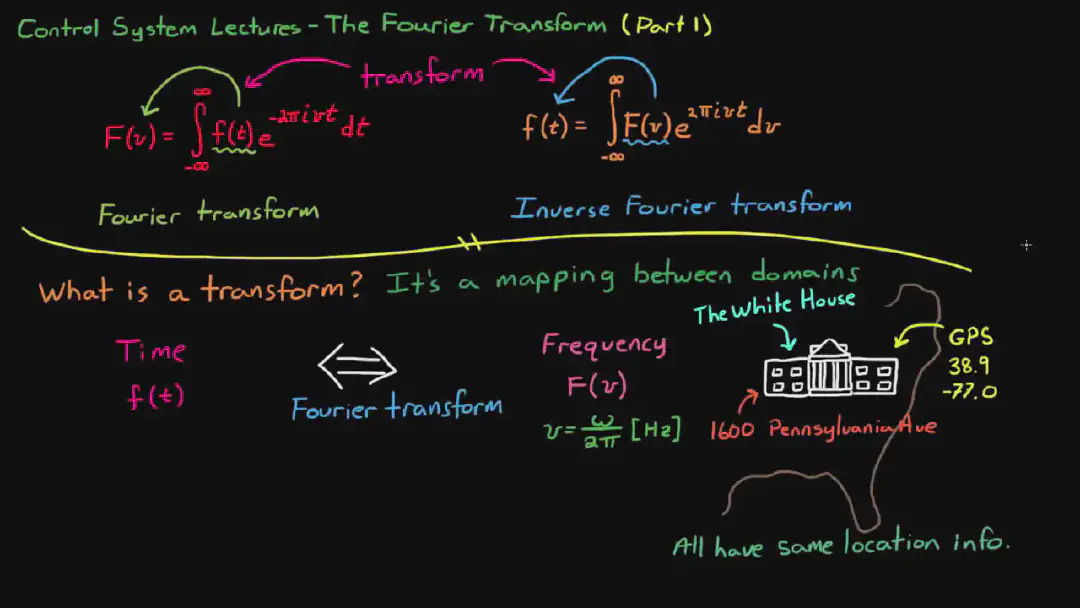 Control System Lectures - The Fourier Transform (Part 1)
transform
F(v) = ∫_{-∞}^{∞} f(t) e^{-2πivt} dt
f(t) = ∫_{-∞}^{∞} F(v) e^{2πivt} dv
Fourier transform
Inverse Fourier transform
What is a transform? It's a mapping between domains
The White House
Time
f(t)
Fourier transform
Frequency
F(v)
v = ω/2π [Hz]
GPS
38.9
-77.0
1600 Pennsylvania Ave
All have same location info.